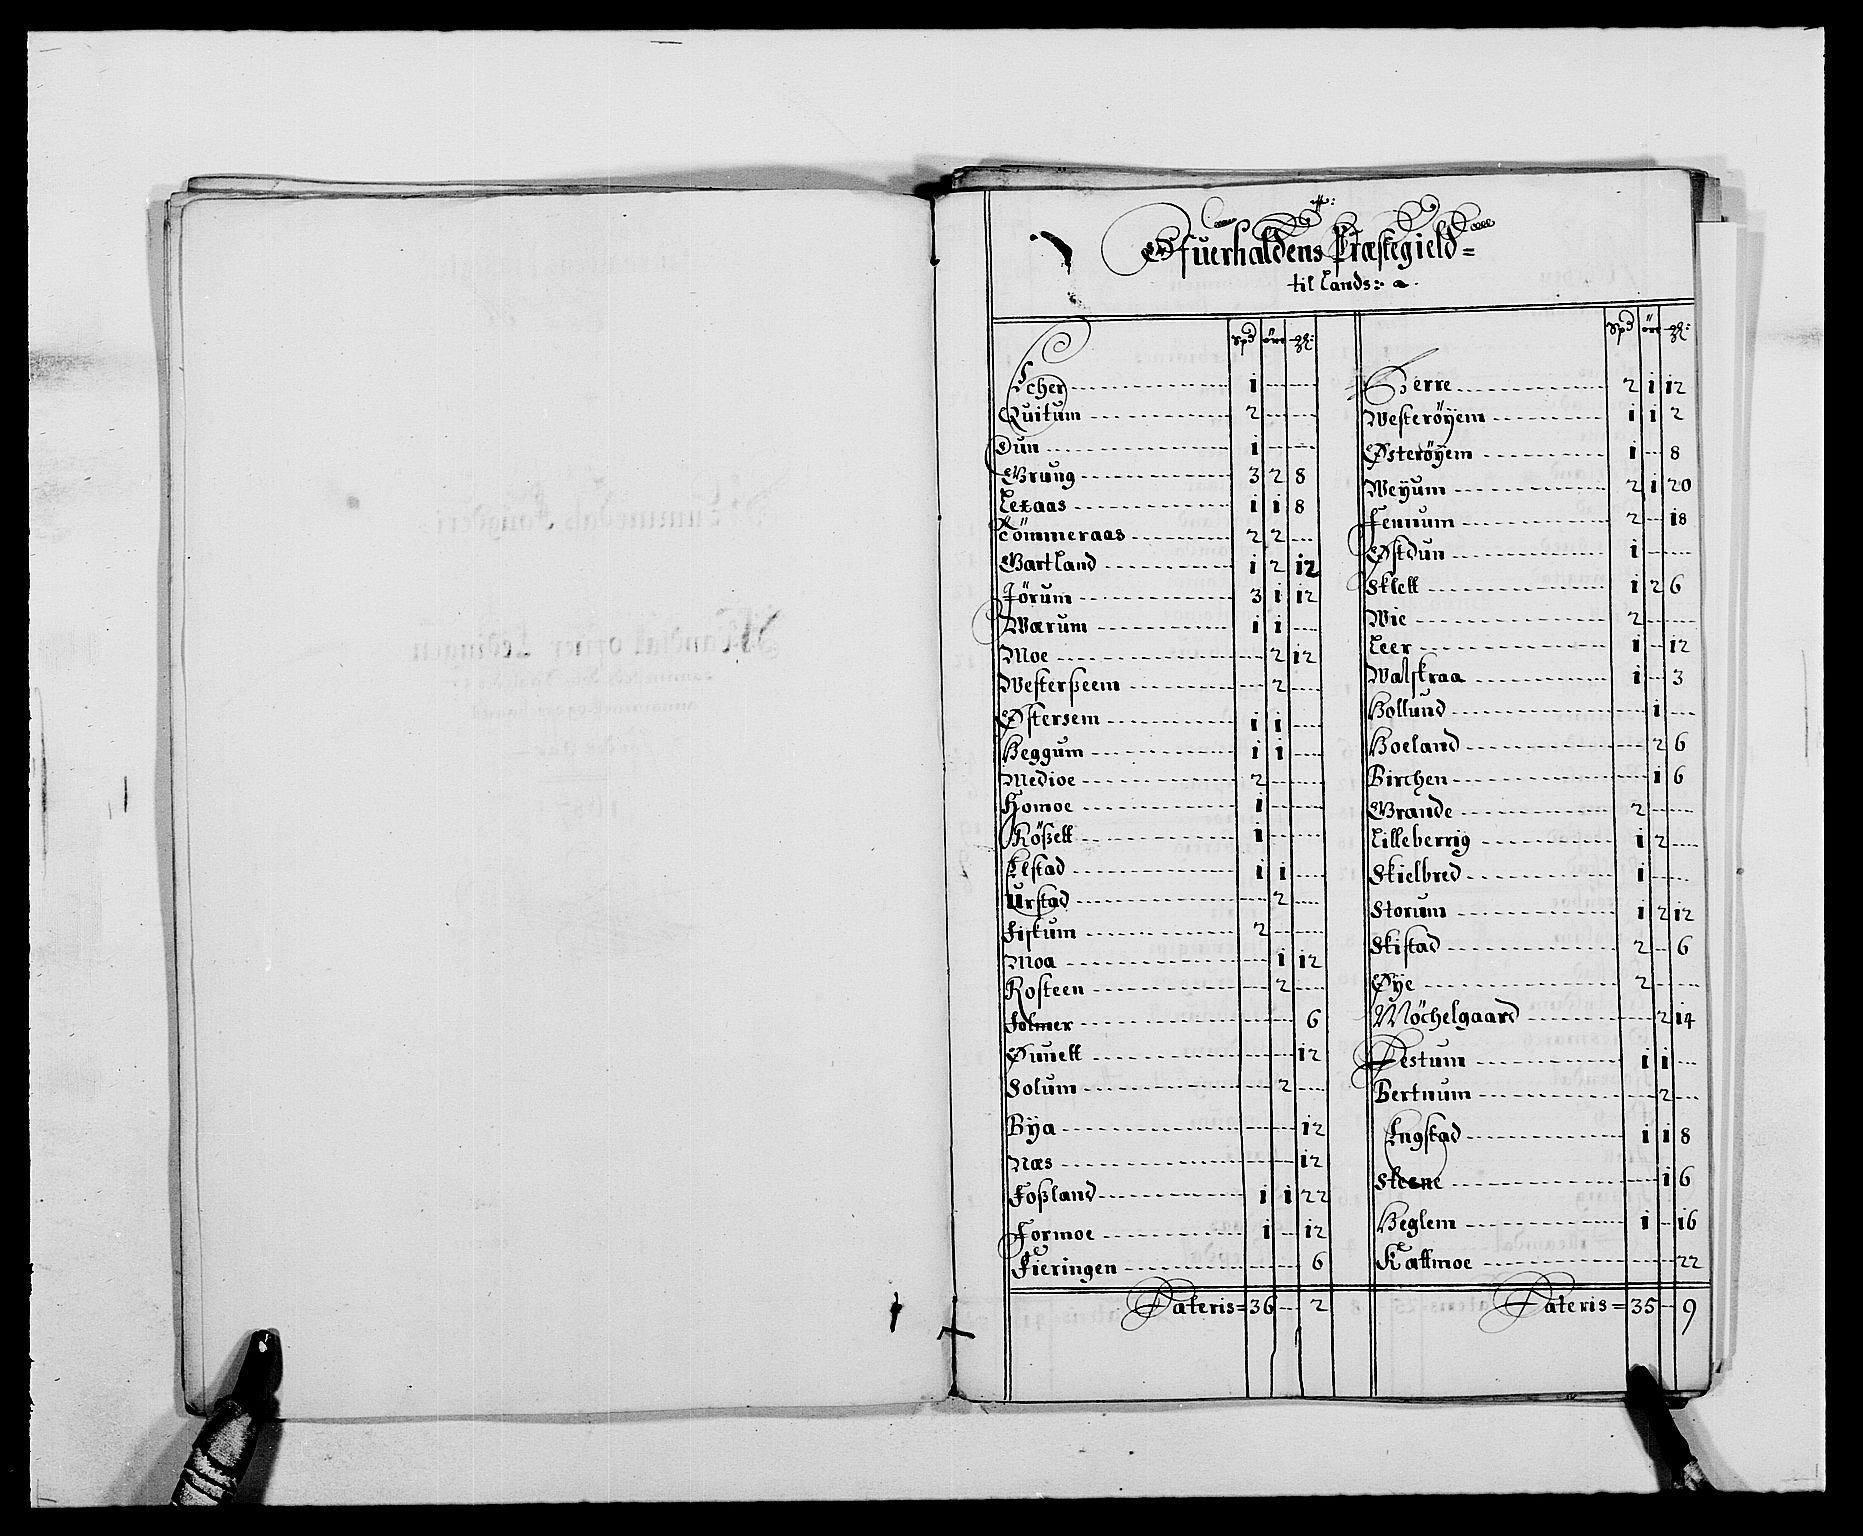 Ofuerhaldens Præstegield=
til Lands:
Spd öre ℳ:
Echer 1
Quitum 2
Dun 1
Grung 3 2 8
Lexaas 1 1 8
Tömmeraas 2 2
Gartland 1 2 12
Jörum 3 1 12
Wærum 1 1
Moe 2 12
Westerßeem 2
Østersem 1 1
Heggum 1 1
Medioe 2
Homoe 1
Rößett 1
Elstad 1 1
Urstad 2
Fiskum 2
Moa 1 12
Rosteen 2
Holmer 6
Ømett 12
Solum 2
Bÿa 12
Næs 12
Foßland 1 1 22
Formoe 1 12
Fieringen 6
Lateris = 36 2
Spd öre ℳ:
Verre 2 1 12
Westerøÿem 1 1 2
Østerøÿem 1 8
Weÿum 2 1 20
Femum 2 18
Østdun 1
Sklett 1 2 6
Wie 2
Leer 1 12
Walskraa 1 3
Hollund 1
Hoeland 2 6
Birchen 1 6
Grande 2
Lilleberrig 1 2
Skielbred 1
Storum 1 2 12
Skistad 2 6
Øÿe 2
Möchelgaard 2 14
Testum 1 1
Bertnum 2
Engstad 1 1 8
Steene 1 6
Heglem 1 16
Kattmoe 22
Lateris = 35 9